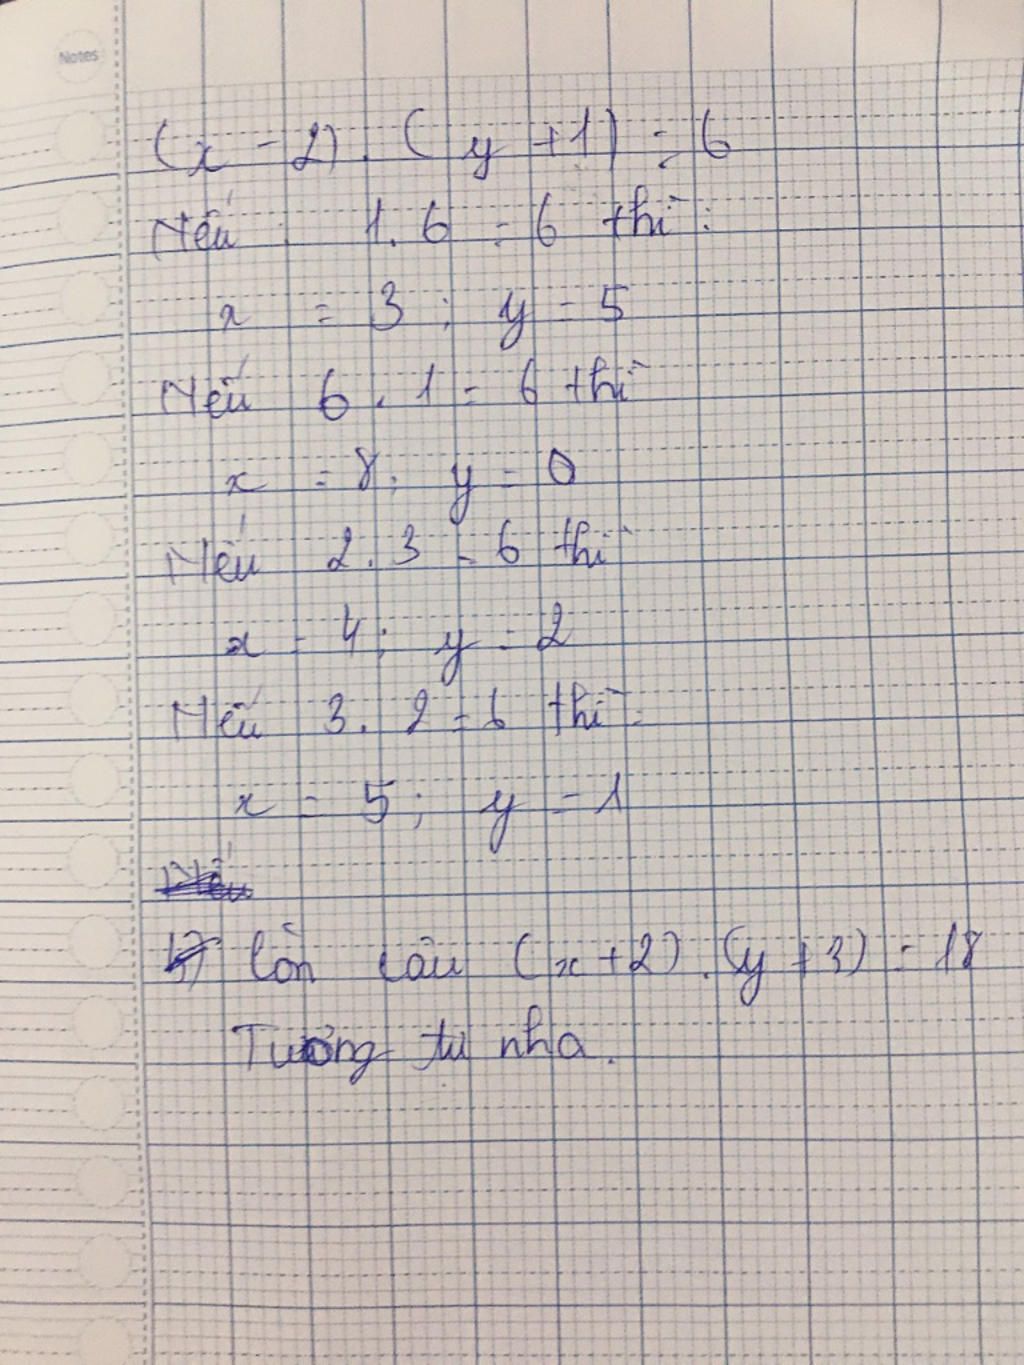 Notes
(x - 2) . ( y + 1) = 6
Nếu 1. 6 = 6 thì :
x = 3 ; y = 5
Nếu 6 . 1 = 6 thì
x = 8 ; y = 0
Nếu 2 . 3 = 6 thì
x = 4 ; y = 2
Nếu 3 . 2 = 6 thì :
x = 5 ; y = 1
Nếu
b) Còn câu (x + 2) . (y + 3) = 18
Tương tự nha .